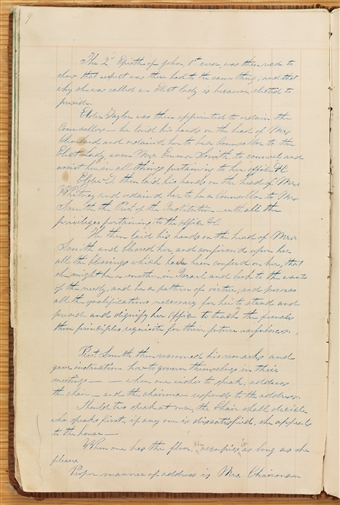 9
The 2d Epistle of John, 1st verse, was then read to
show that respect was then had to the same thing, and that
why she was called an Elect lady is because elected to
preside.
Elder Taylor was then appointed to ordain the
Counsellors — he laid his hands on the head of Mrs
Cleveland and ordained her to be a Counsellor to the
Elect Lady, even Mrs. Emma Smith, to counsel and
assist her in all things pertaining to her office &c.
Elder T. then laid his hands on the head of Mrs
Whitney and ordained her to be a Counsellor to Mrs
Smith the Prest of the Institution — with all the
privileges pertaining to the office &c.
He then laid his hands on the head of Mrs
Smith and blessed her, and confirmed upon her
all the blessings which have been confer'd on her, that
she might be a mother in Israel and look to the wants
of the needy, and be a pattern of virtue, and possess
all the qualifications necessary for her to stand and
preside and dignify her Office, to teach the females
those principles requisite for their future usefulness.
Prest Smith then resumed his remarks and
gave instruction how to govern themselves in their
meetings — when one wishes to speak, address
the chair — and the chairman responds to the address.
Should two speak at once, the Chair shall decide
who speaks first, if any one is dissatisfied, she appeals
to the house —
When one has the floor, occupies as long as she
pleases
Proper manner of address is Mrs. Chairman